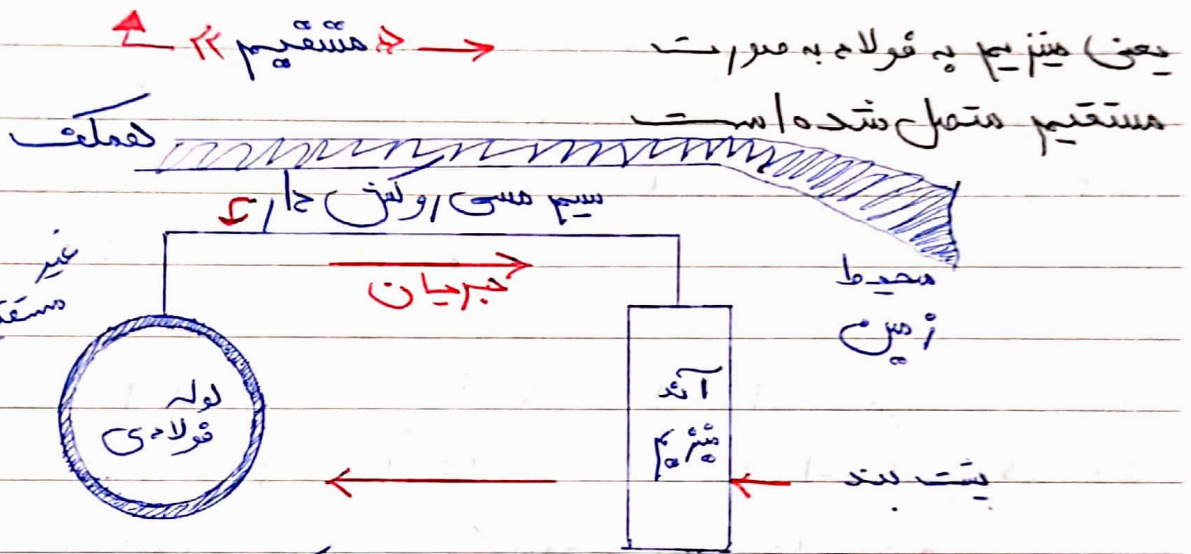 یعنی منیزیم به فولاد به صورت «مستقیم»
مستقیم متصل شده است
همکف
سیم مسی روکش دار
جریان
غیر
محیط
زمین
لوله
فولادی
آند
منیزیم
پشت بند